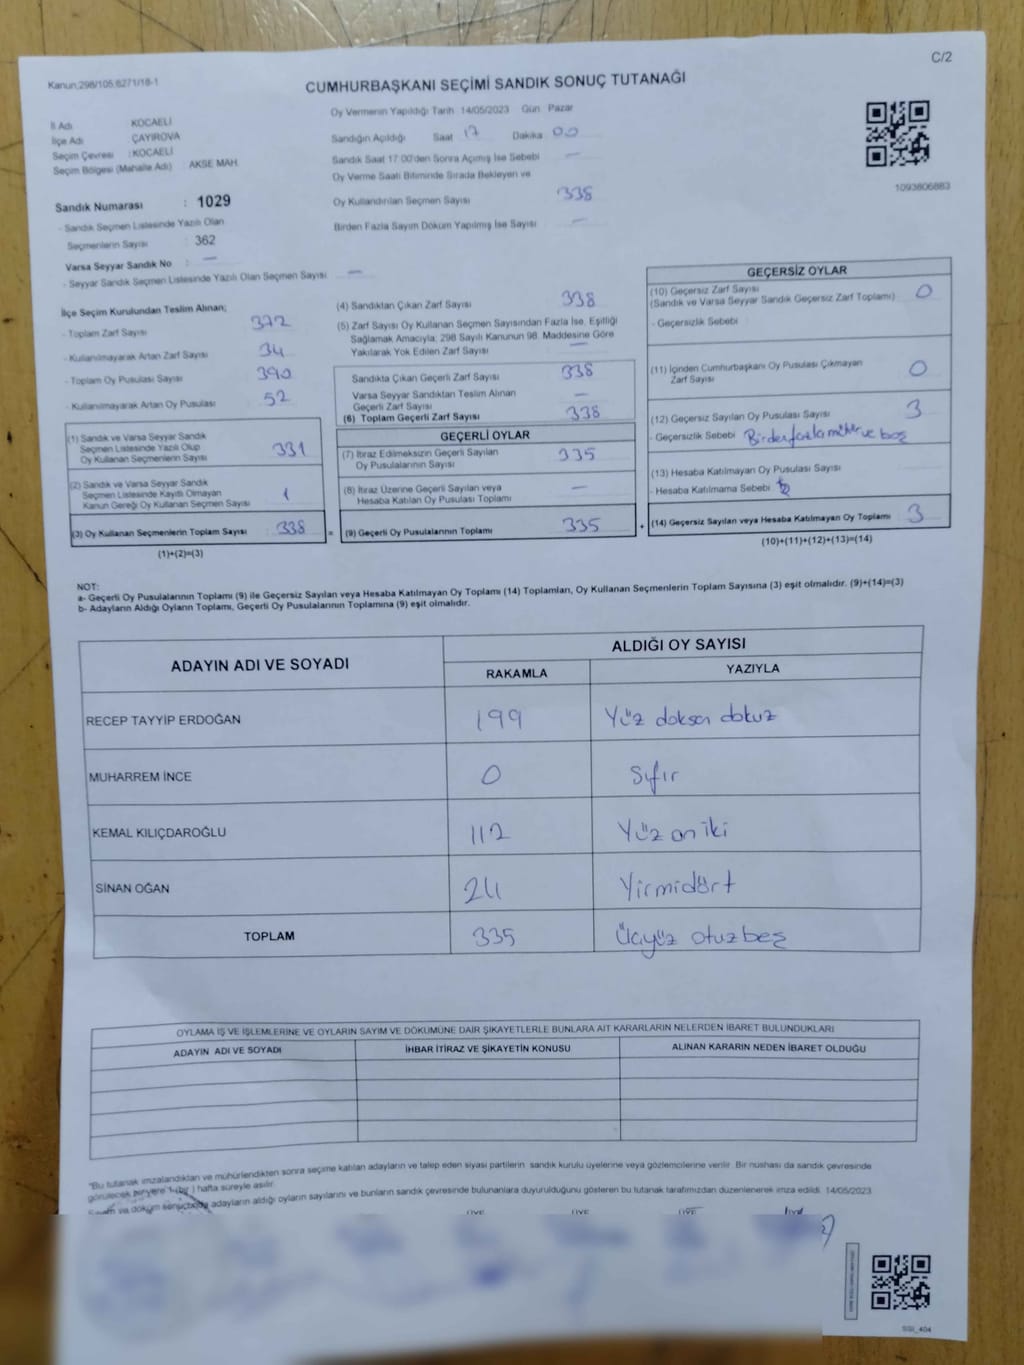 C/2
Kanun;298/105,6271/18-1
CUMHURBAŞKANI SEÇİMİ SANDIK SONUÇ TUTANAĞI
İl Adı KOCAELİ
İlçe Adı ÇAYIROVA
Seçim Çevresi : KOCAELİ
Seçim Bölgesi (Mahalle Adı) : AKSE MAH.
Sandık Numarası : 1029
- Sandık Seçmen Listesinde Yazılı Olan
Seçmenlerin Sayısı : 362
Varsa Seyyar Sandık No : —
- Seyyar Sandık Seçmen Listesinde Yazılı Olan Seçmen Sayısı : —
Oy Vermenin Yapıldığı Tarih 14/05/2023 Gün Pazar
Sandığın Açıldığı Saat 17 Dakika 00
Sandık Saat 17:00'den Sonra Açımış İse Sebebi —
Oy Verme Saati Bitiminde Sırada Bekleyen ve
Oy Kullandırılan Seçmen Sayısı 338
Birden Fazla Sayım Döküm Yapılmış İse Sayısı —
1093806883
İlçe Seçim Kurulundan Teslim Alınan;
- Toplam Zarf Sayısı 372
- Kullanılmayarak Artan Zarf Sayısı 34
- Toplam Oy Pusulası Sayısı 390
- Kullanılmayarak Artan Oy Pusulası 52
(1) Sandık ve Varsa Seyyar Sandık
Seçmen Listesinde Yazılı Olup
Oy Kullanan Seçmenlerin Sayısı 331
(2) Sandık ve Varsa Seyyar Sandık
Seçmen Listesinde Kayıtlı Olmayan
Kanun Gereği Oy Kullanan Seçmen Sayısı 1
(3) Oy Kullanan Seçmenlerin Toplam Sayısı 338 =
(1)+(2)=(3)
(4) Sandıktan Çıkan Zarf Sayısı 338
(5) Zarf Sayısı Oy Kullanan Seçmen Sayısından Fazla İse, Eşitliği
Sağlamak Amacıyla; 298 Sayılı Kanunun 98. Maddesine Göre
Yakılarak Yok Edilen Zarf Sayısı —
Sandıkta Çıkan Geçerli Zarf Sayısı 338
Varsa Seyyar Sandıktan Teslim Alınan
Geçerli Zarf Sayısı —
(6) Toplam Geçerli Zarf Sayısı 338
GEÇERLİ OYLAR
(7) İtiraz Edilmeksizin Geçerli Sayılan
Oy Pusulalarının Sayısı 335
(8) İtiraz Üzerine Geçerli Sayılan veya
Hesaba Katılan Oy Pusulası Toplamı —
(9) Geçerli Oy Pusulalarının Toplamı 335 +
GEÇERSİZ OYLAR
(10) Geçersiz Zarf Sayısı
(Sandık ve Varsa Seyyar Sandık Geçersiz Zarf Toplamı) 0
- Geçersizlik Sebebi
(11) İçinden Cumhurbaşkanı Oy Pusulası Çıkmayan
Zarf Sayısı 0
(12) Geçersiz Sayılan Oy Pusulası Sayısı 3
- Geçersizlik Sebebi Birden fazla mühür ve boş
(13) Hesaba Katılmayan Oy Pusulası Sayısı
- Hesaba Katılmama Sebebi
(14) Geçersiz Sayılan veya Hesaba Katılmayan Oy Toplamı 3
(10)+(11)+(12)+(13)=(14)
NOT:
a- Geçerli Oy Pusulalarının Toplamı (9) ile Geçersiz Sayılan veya Hesaba Katılmayan Oy Toplamı (14) Toplamları, Oy Kullanan Seçmenlerin Toplam Sayısına (3) eşit olmalıdır. (9)+(14)=(3)
b- Adayların Aldığı Oyların Toplamı, Geçerli Oy Pusulalarının Toplamına (9) eşit olmalıdır.
ADAYIN ADI VE SOYADI
ALDIĞI OY SAYISI
RAKAMLA YAZIYLA
RECEP TAYYİP ERDOĞAN 199 Yüz doksan dokuz
MUHARREM İNCE 0 Sıfır
KEMAL KILIÇDAROĞLU 112 Yüz on iki
SİNAN OĞAN 24 Yirmidört
TOPLAM 335 Üçyüz otuzbeş
OYLAMA İŞ VE İŞLEMLERİNE VE OYLARIN SAYIM VE DÖKÜMÜNE DAİR ŞİKAYETLERLE BUNLARA AİT KARARLARIN NELERDEN İBARET BULUNDUKLARI
ADAYIN ADI VE SOYADI İHBAR İTİRAZ VE ŞİKAYETİN KONUSU ALINAN KARARIN NEDEN İBARET OLDUĞU
"Bu tutanak imzalandıktan ve mühürlendikten sonra seçime katılan adayların ve talep eden siyasi partilerin sandık kurulu üyelerine veya gözlemcilerine verilir. Bir nüshası da sandık çevresinde
görülecek bir yere 1 (bir ) hafta süreyle asılır.
Sayım ve döküm sonucunda adayların aldığı oyların sayılarını ve bunların sandık çevresinde bulunanlara duyurulduğunu gösteren bu tutanak tarafımızdan düzenlenerek imza edildi. 14/05/2023
ÜYE ÜYE ÜYE ÜYE
SSI_404